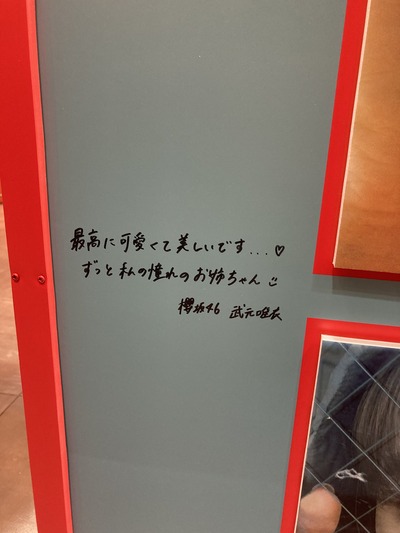 最高に可愛くて美しいです...♡
ずっと私の憧れのお姉ちゃん
櫻坂46 武元唯衣